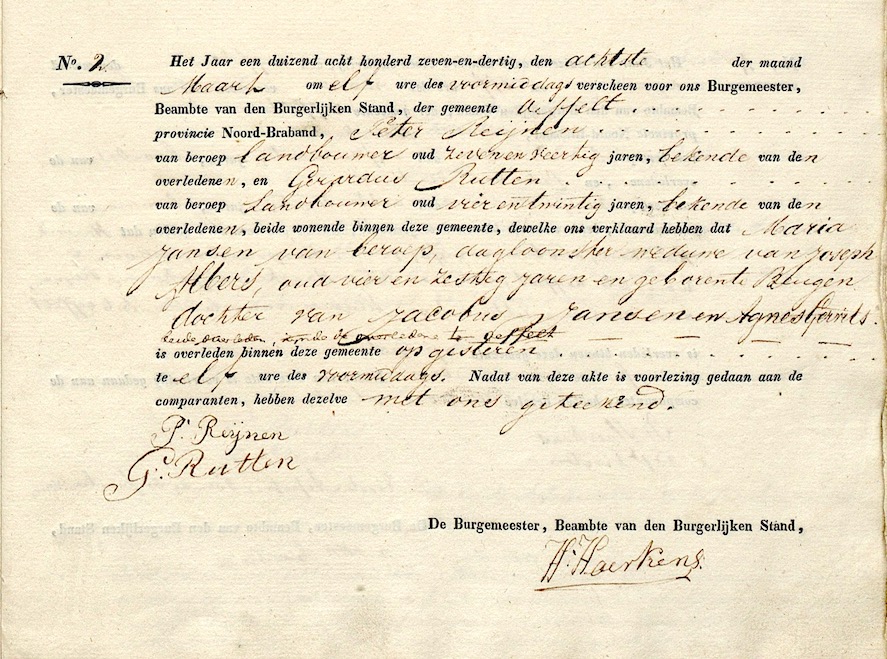 No. 2. Het Jaar een duizend acht honderd zeven-en-dertig, den achtste der maand
Maart om elf ure des voormiddags verscheen voor ons Burgemeester,
Beambte van den Burgerlijken Stand, der gemeente Oeffelt
provincie Noord-Braband, Peter Reijnen
van beroep landbouwer oud zeven en veertig jaren, bekende van den
overledenen, en Gerardus Rutten
van beroep Landbouwer oud vier en twintig jaren, bekende van den
overledenen, beide wonende binnen deze gemeente, dewelke ons verklaard hebben dat Maria
Jansen van beroep, dagloonster weduwe van Joseph
Albers, oud vier en zestig jaren en geboren te Beugen
dochter van Jacobus Jansen en Agnes Gerrits.
beide overleden, zijnde de overledene te Oeffelt
is overleden binnen deze gemeente op gisteren
te elf ure des voormiddags. Nadat van deze akte is voorlezing gedaan aan de
comparanten, hebben dezelve met ons geteekend.
P. Reijnen
G. Rutten
De Burgemeester, Beambte van den Burgerlijken Stand,
H. Haerkens